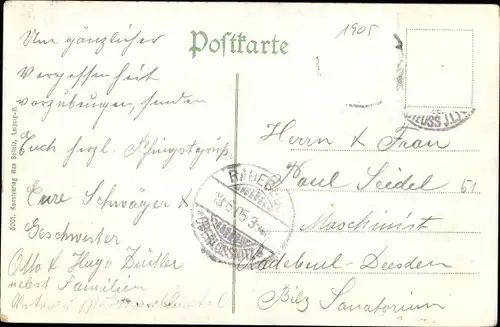 1905
Postkarte
Um gänzlicher
Vergessenheit
vorzubeugen, senden
Euch herzl. Pfingstgrüße
Eure Schwäger &
Geschwister
Otto & Hugo
nebst Familien
Herrn & Frau
Paul Seidel 51
Maschinist
Radebeul-Dresden
Bilz Sanatorium
RADEBEUL
13.6.05.3-4N
OBERLÖSSNITZ
5001 Kunstverlag Max Schulz, Leipzig-R.